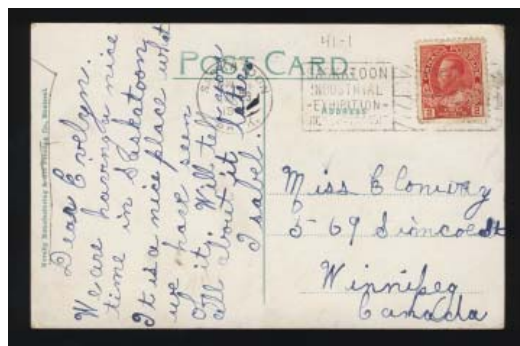 POST CARD
41-1
SASKATOON
INDUSTRIAL
-EXHIBITION-
ADDRESS
CANADA POSTAGE
2 2
Dear Evelyn.
We are having a nice
time in Saskatoon
It is a nice place what
we have seen
of it. Will tell you
all about it later
Isabel.
Miss E Conway
569 Simcoe St
Winnipeg
Canada